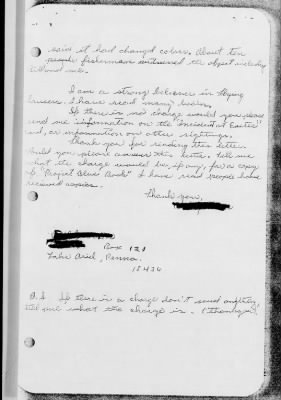 said it had changd colors. About ten
people fishermen witnessed the object including
I am a strong believer in flying
saucers. I have read many books.
If there is no charge would you please
send me information on the "Incident at Exeter"
and, or information on other sightings.
Thank you for reading this letter.
Would you please answer this letter. Tell me
what the charge would be if any, for a copy
of "Project Blue Book" I have read people have
received copies.
Thank you,
Box 121
Lake Ariel, Penna.
18436
P.S. If there is a charge don't send anything,
tell me what the charge is. (Thank you)